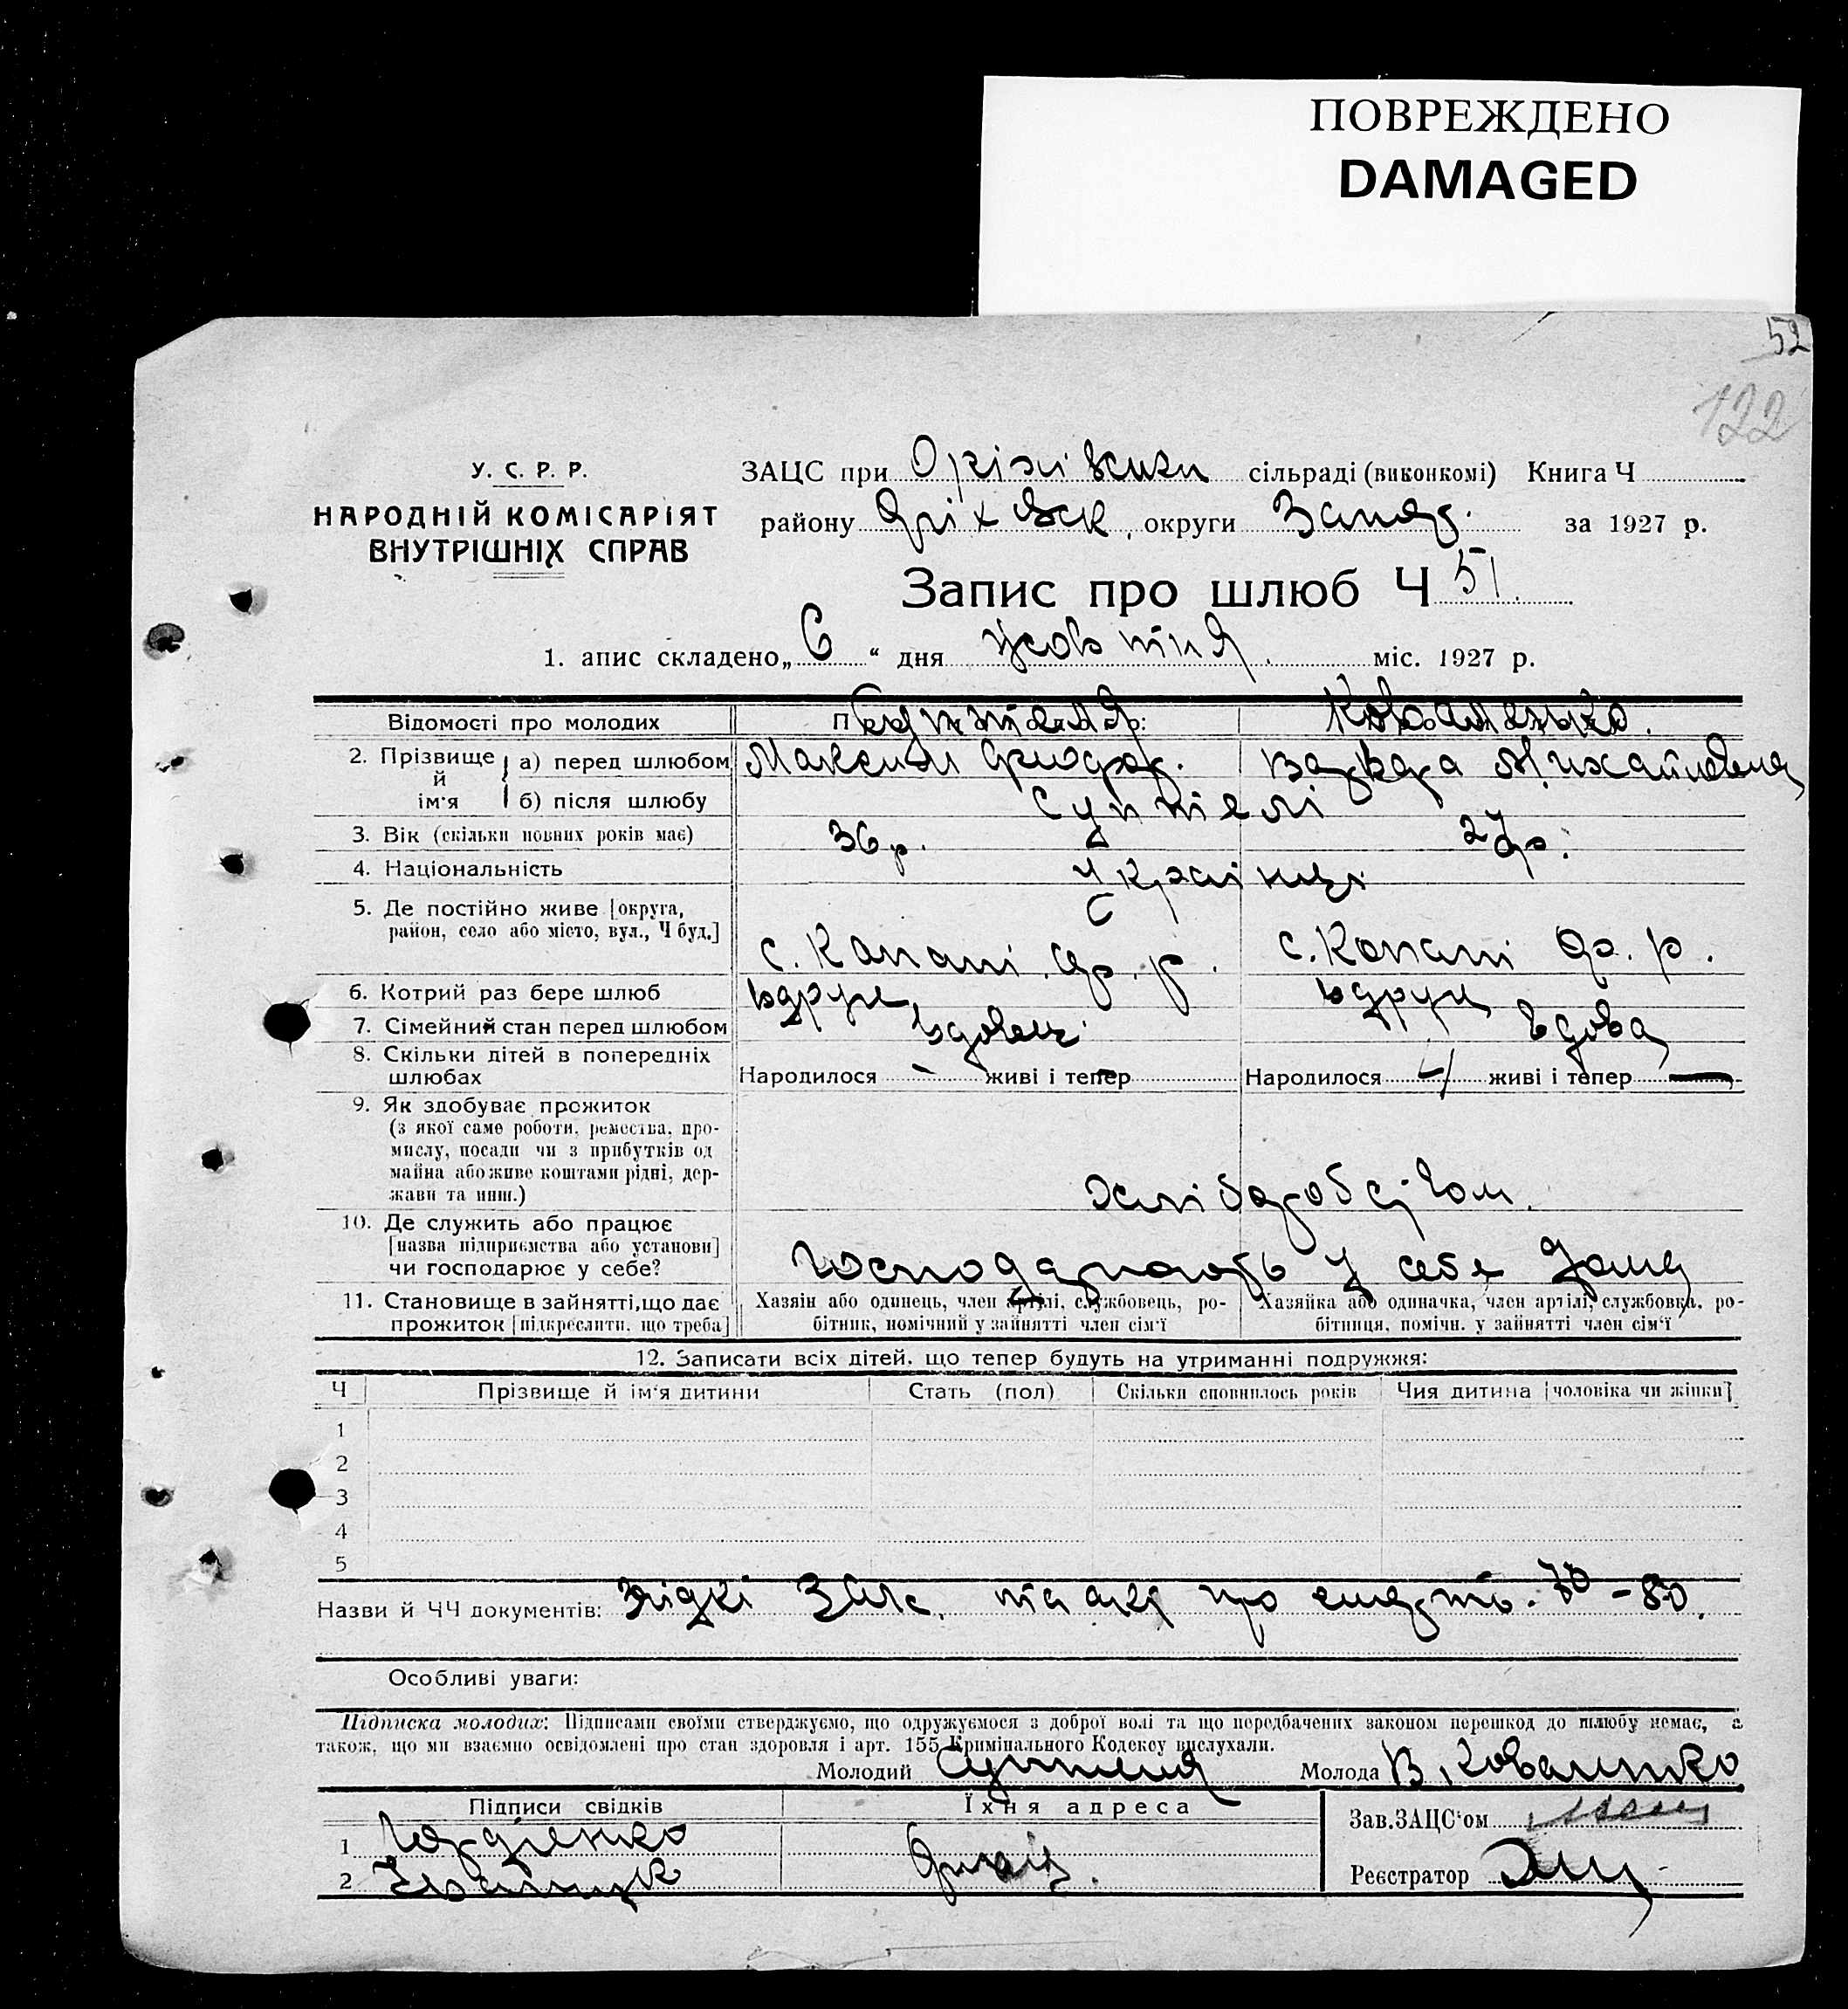 ПОВРЕЖДЕНО
DAMAGED
52
122
У. С. Р. Р.
НАРОДНІЙ КОМІСАРІЯТ
ВНУТРІШНІХ СПРАВ
ЗАЦС при сільраді (виконкомі) Книга Ч
району Оріховск, округи Запор. за 1927 р.
Запис про шлюб Ч 51.
1. апис складено „6“ дня жовтня міс. 1927 р.
Відомості про молодих
Коваленько.
2. Прізвище й ім'я
а) перед шлюбом Максим Федор. Варвара Михайловна
б) після шлюбу
3. Вік (скільки повних років має) 36 р. 27 р.
4. Національність Українці
5. Де постійно живе [округа, район, село або місто, вул., Ч буд.]
с. Копани Ор. р. с. Копани Ор. р.
6. Котрий раз бере шлюб вдруге вдруге
7. Сімейний стан перед шлюбом вдовець вдова
8. Скільки дітей в попередніх шлюбах
Народилося – живі і тепер – Народилося 4 живі і тепер —
9. Як здобуває прожиток
(з якої саме роботи, ремества, про-
мислу, посади чи з прибутків од
майна або живе коштами рідні, дер-
жави та инш.)
хлібаробством.
10. Де служить або працює
[назва підприємства або установи]
чи господарює у себе?
господарюють у себе дома
11. Становище в зайнятті, що дає
прожиток [підкреслити, що треба]
Хазяїн або одинець, член артілі, службовець, ро-
бітник, помічний у зайнятті член сім'ї
Хазяйка або одиначка, член артілі, службовка, ро-
бітниця, помічн. у зайнятті член сім'ї
12. Записати всіх дітей, що тепер будуть на утриманні подружжя:
Ч Прізвище й ім'я дитини Стать (пол) Скільки сповнилось років Чия дитина [чоловіка чи жінки]
1
2
3
4
5
Назви й ЧЧ документів: та акт про смерть. 70 – 80.
Особливі уваги:
Підписка молодих: Підписами своїми стверджуємо, що одружуємося з доброї волі та що передбачених законом перешкод до шлюбу немає, а
також, що ми взаємно освідомлені про стан здоровля і арт. 155 Кримінального Кодексу вислухали.
Молодий Молода В. Коваленко
Підписи свідків Їхня адреса
Зав. ЗАЦС'ом
1 Гордієнко
2
Реєстратор